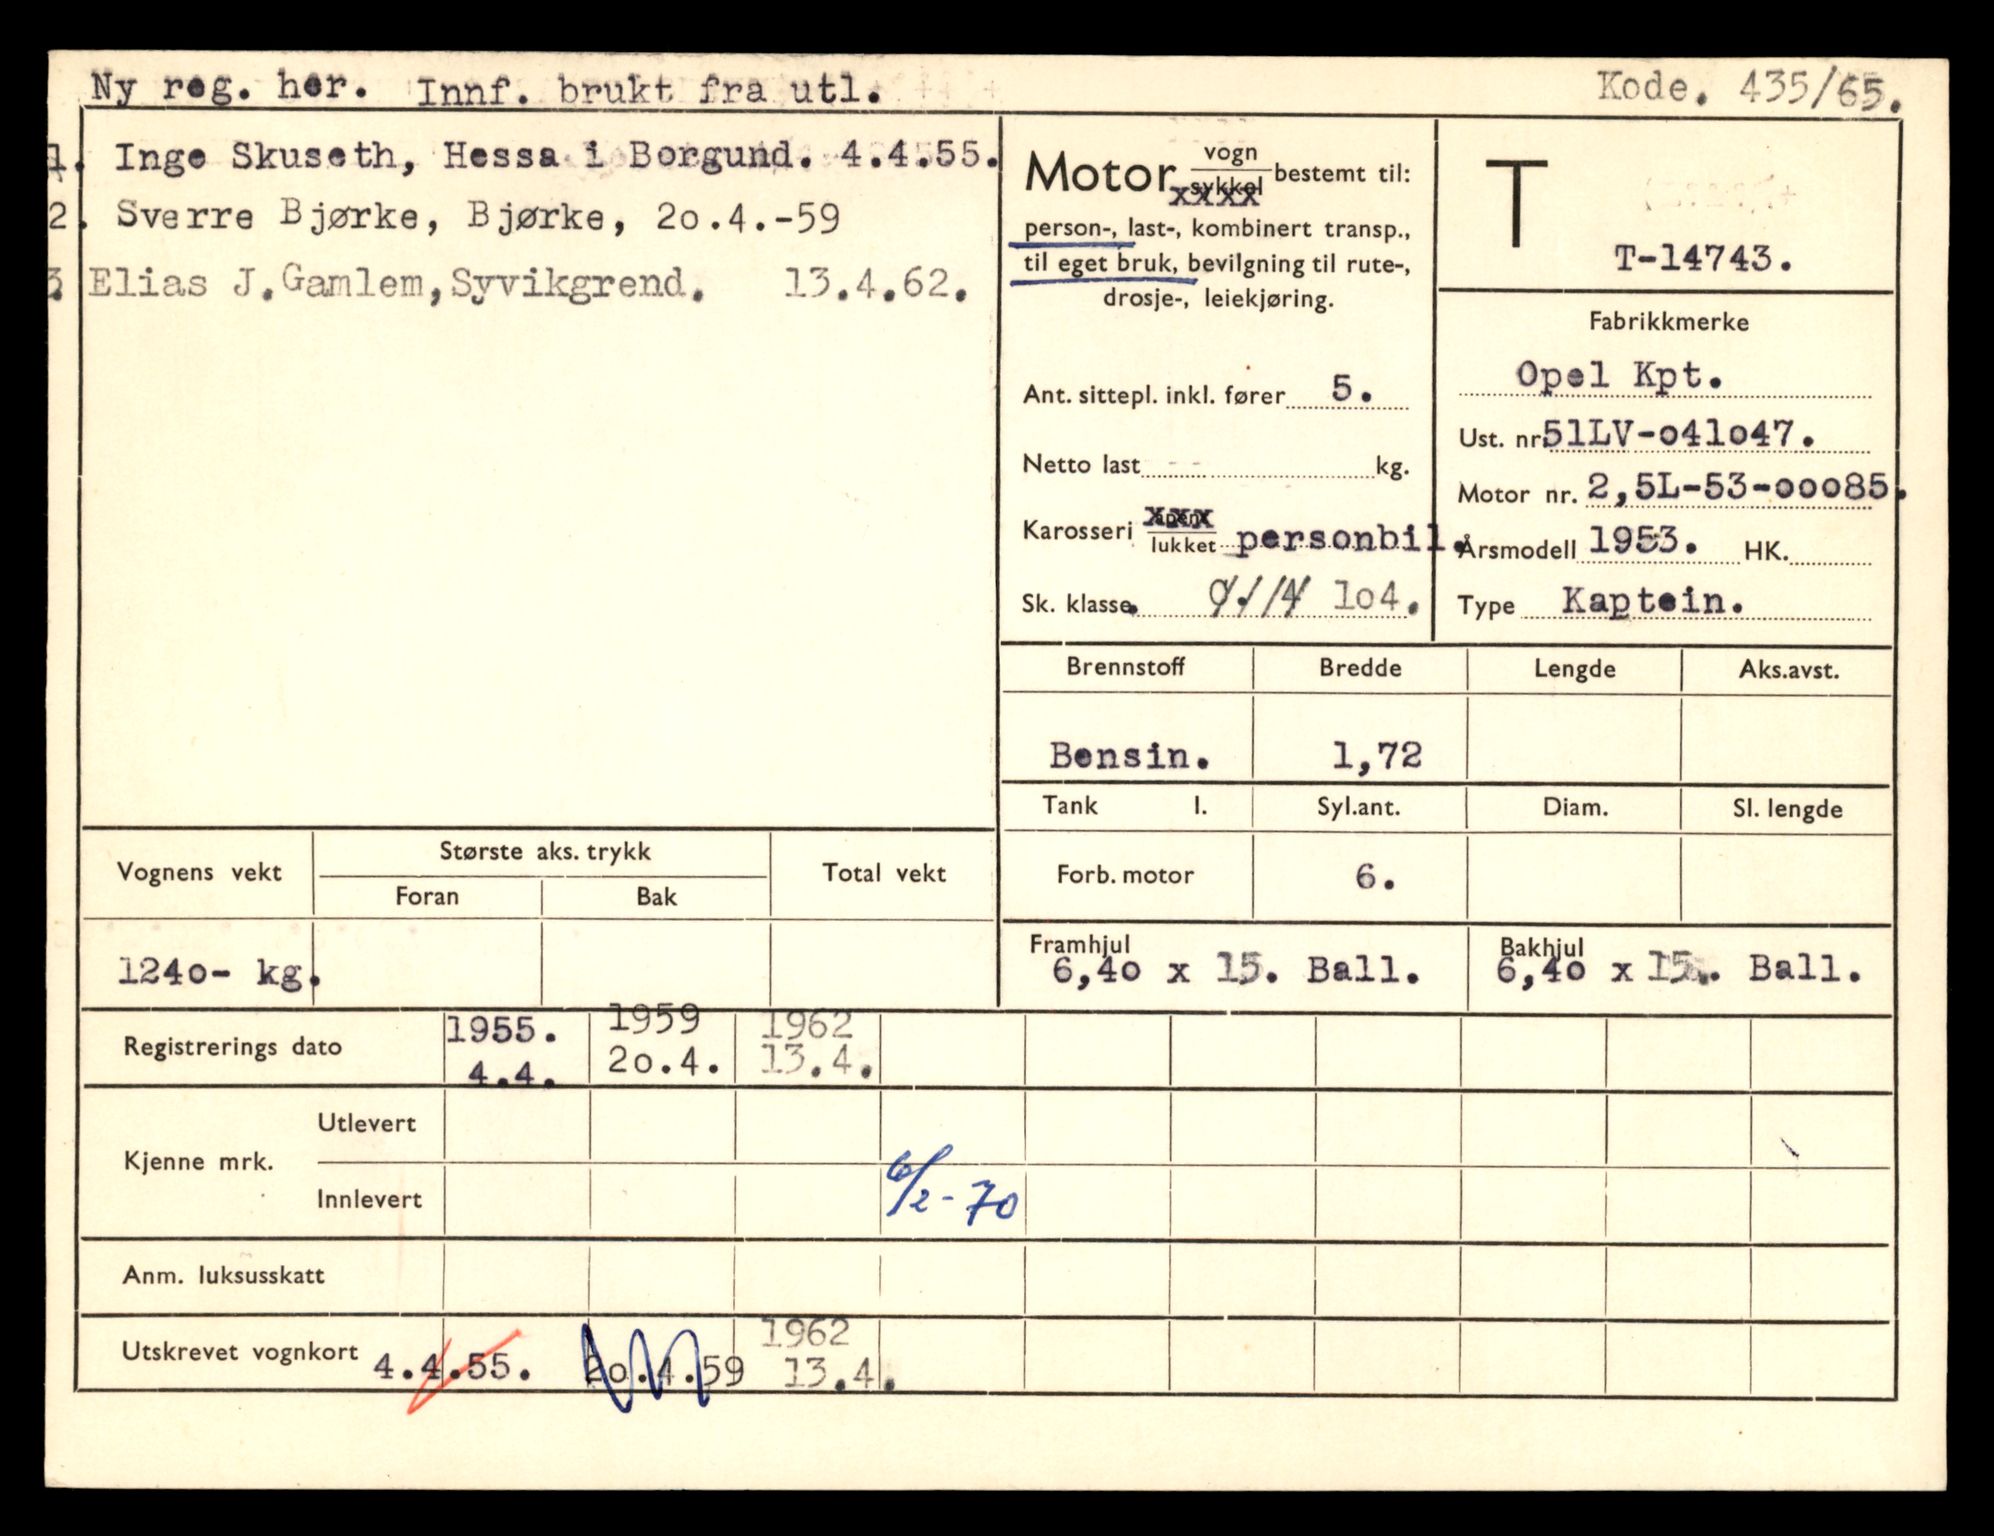 Ny reg. her. Innf. brukt fra utl.
Kode. 435/65.
1. Inge Skuseth, Hessa i Borgund. 4.4.55.
2. Sverre Bjørke, Bjørke, 2o.4.-59
3. Elias J.Gamlem,Syvikgrend. 13.4.62.
Motor vogn
sykkel bestemt til:
xxxx
person-, last-, kombinert transp.,
til eget bruk, bevilgning til rute-,
drosje-, leiekjøring.
Ant. sittepl. inkl. fører 5.
Netto last -- kg.
Karosseri åpent xxx
lukket personbil.
Sk. klasse. 104.
T
T-14743.
Fabrikkmerke
Opel Kpt.
Ust. nr. 51LV-o41o47.
Motor nr. 2,5L-53-ooo85.
Årsmodell 1953. HK.
Type Kaptein.
Brennstoff Bredde Lengde Aks.avst.
Bensin. 1,72
Tank l. Syl.ant. Diam. Sl. lengde
Forb. motor 6.
Framhjul Bakhjul
6,4o x 15. Ball. 6,4o x 15. Ball.
Vognens vekt Største aks. trykk Total vekt
Foran Bak
124o- kg.
Registrerings dato 1955. 1959 1962
4.4. 2o.4. 13.4.
Kjenne mrk. Utlevert
Innlevert 6/2-70
Anm. luksusskatt
Utskrevet vognkort 4.4.55. 2o.4.59 1962
13.4.